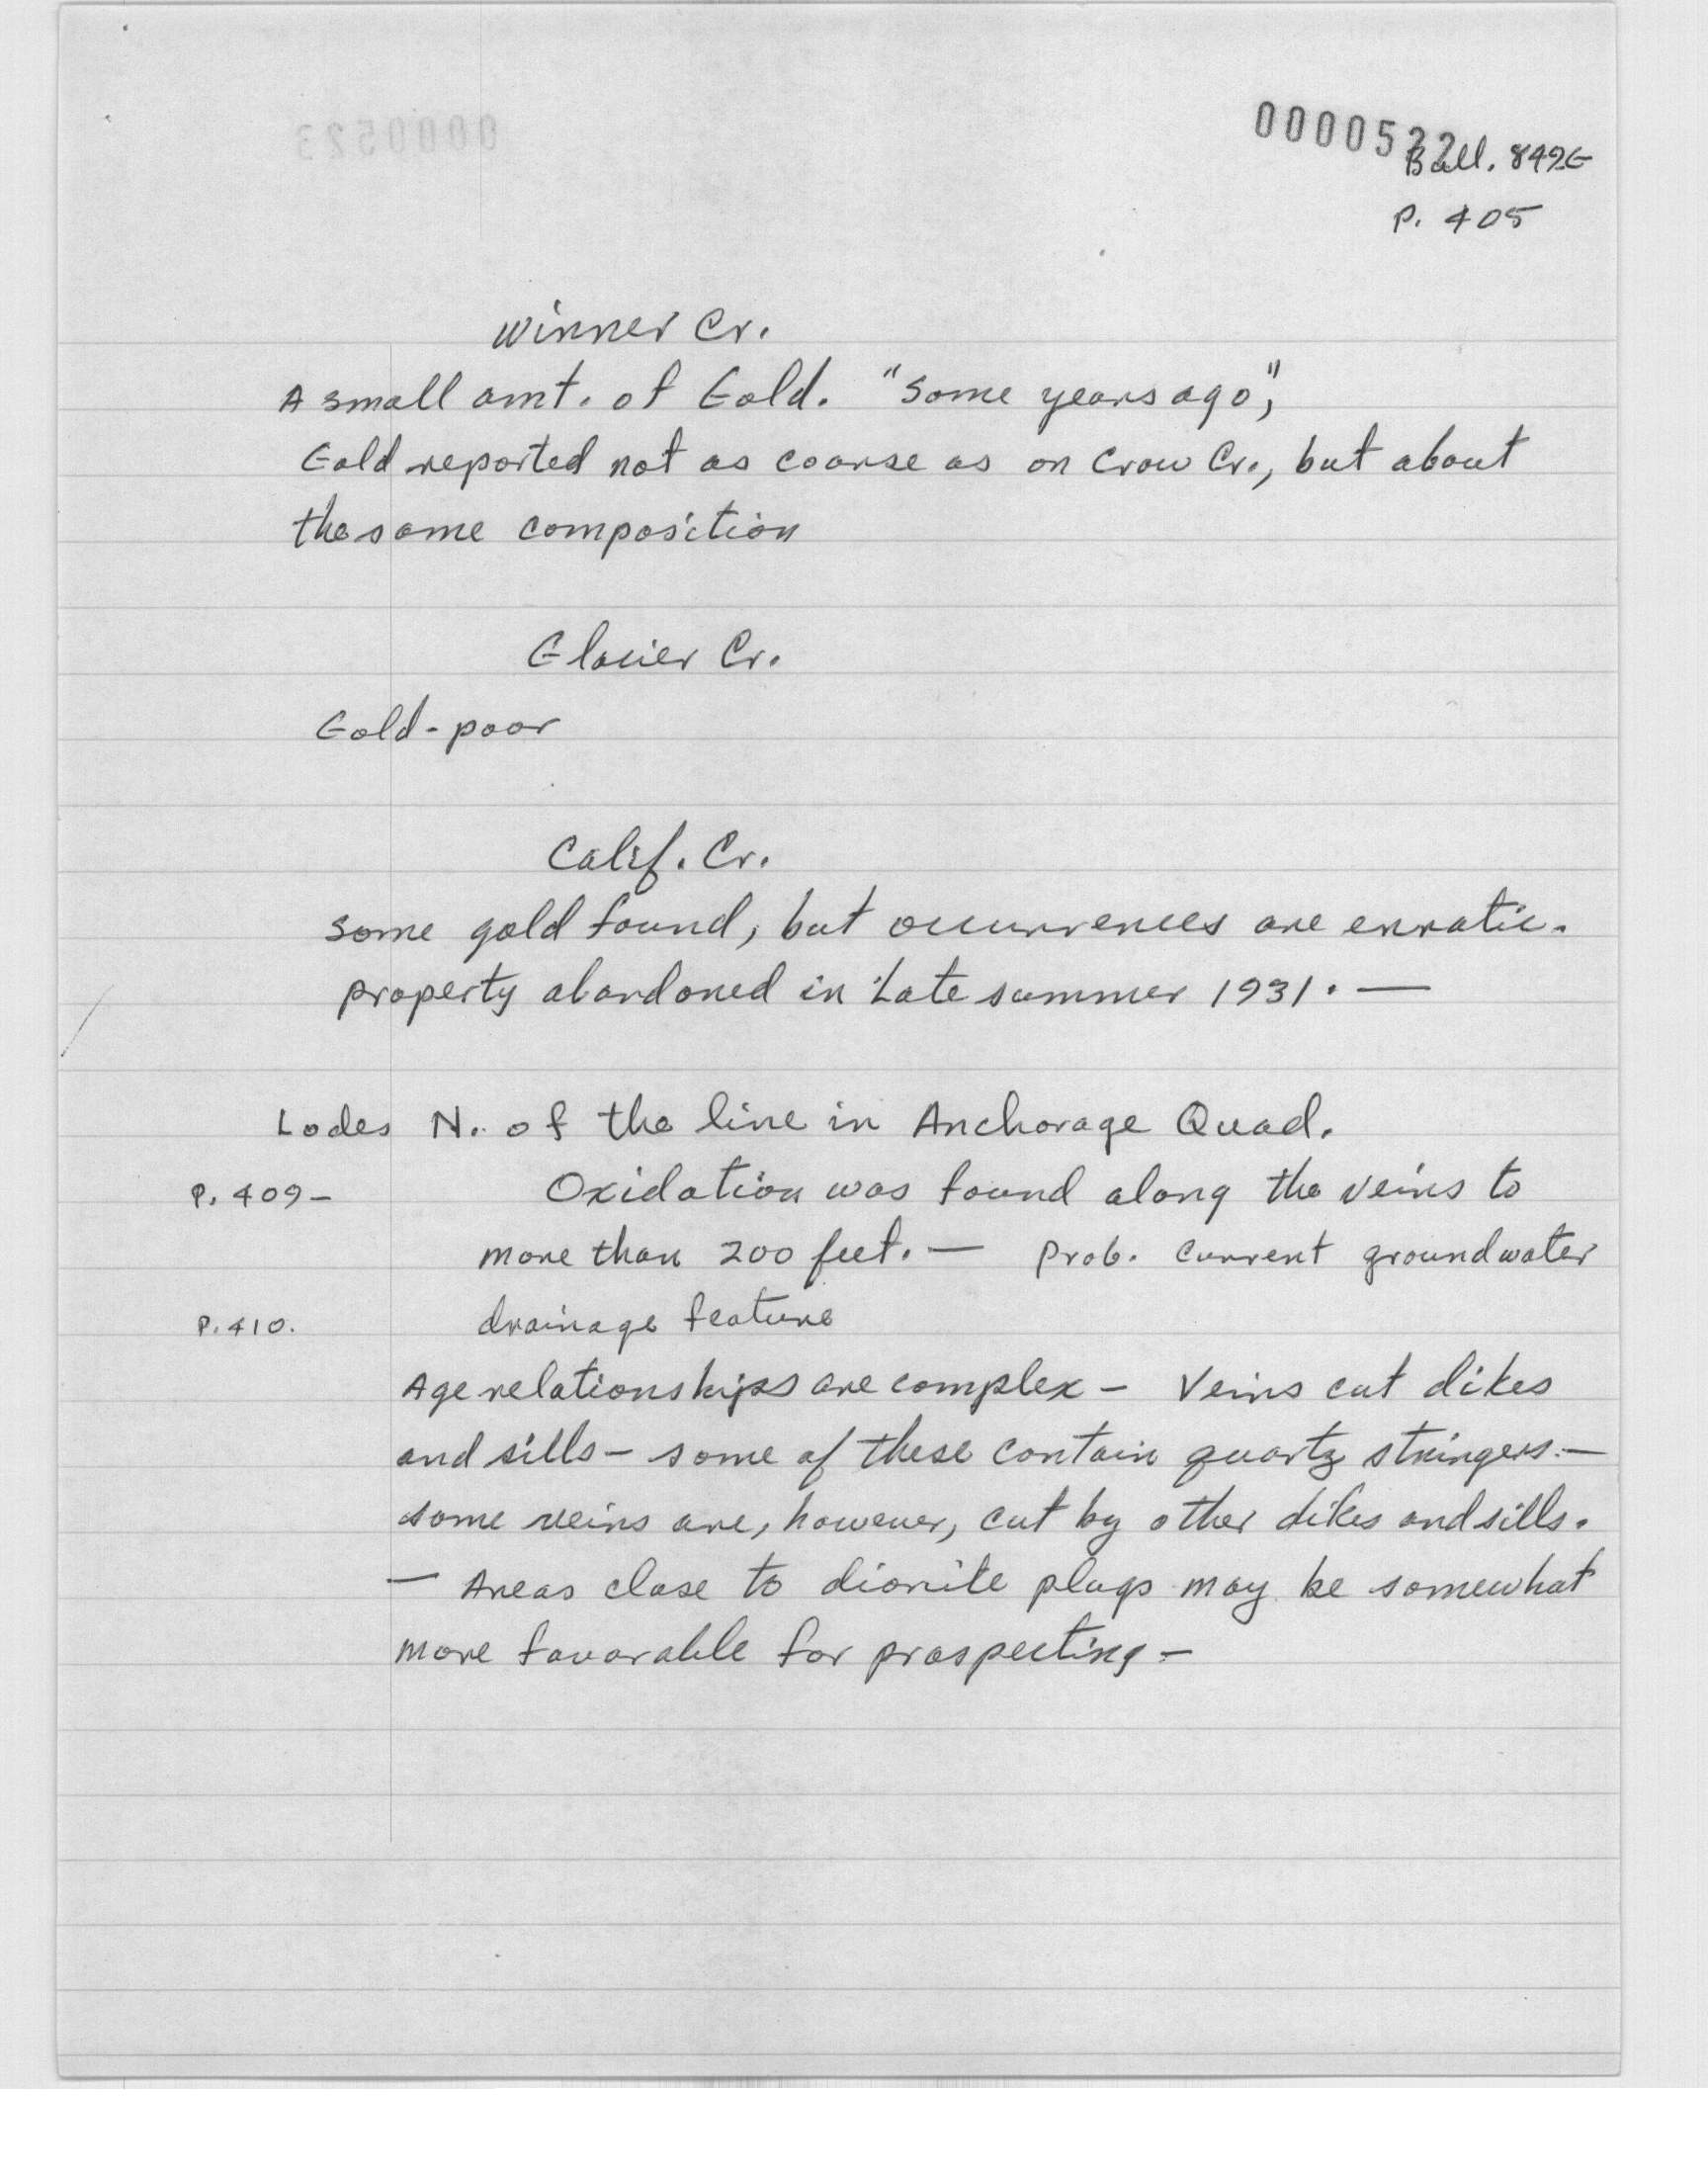 0000522
Bull. 849G
P. 405
Winner Cr.
A small amt. of Gold. "Some years ago",
Gold reported not as coarse as on Crow Cr., but about
the same composition
Glacier Cr.
Gold-poor
Calif. Cr.
Some gold found, but occurrences are erratic.
property abandoned in late summer 1931. —
Lodes N. of the line in Anchorage Quad.
P. 409- Oxidation was found along the veins to
more than 200 feet. — Prob. current groundwater
P. 410. drainage feature
Age relationships are complex - Veins cut dikes
and sills - some of these contain quartz stringers. -
some veins are, however, cut by other dikes and sills.
— Areas close to diorite plugs may be somewhat
more favorable for prospecting -
0000523